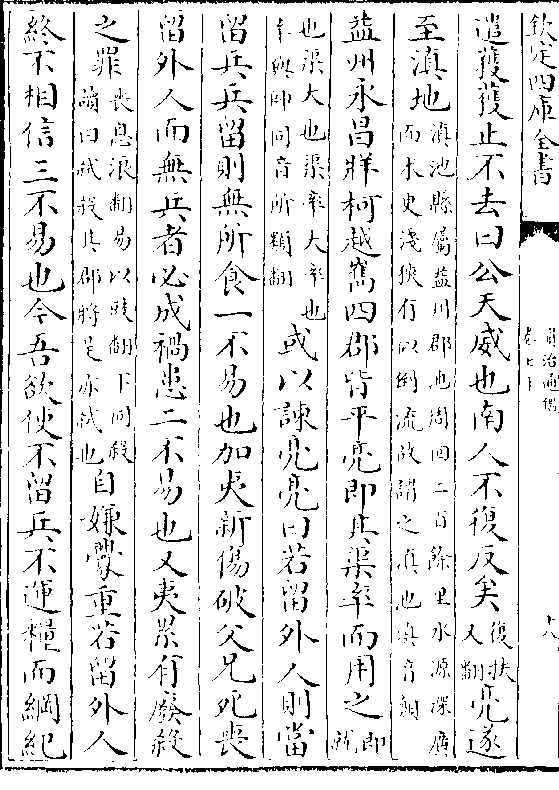 欽定四庫全書
資治通鑑
卷七十
十八
遣獲獲止不去曰公天威也南人不復反矣復扶又翻亮遂
至滇地滇池縣屬益州郡池周回二百餘里水源深廣而末更淺狹有似倒流故謂之滇池滇音顛
益州永昌牂柯越嶲四郡皆平亮即其渠率而用之即就
也渠大也渠率大率也率與帥同音所類翻或以諫亮亮曰若留外人則當
留兵兵留則無所食一不易也加夷新傷破父兄死喪
留外人而無兵者必成禍患二不易也又夷累有廢殺
之罪喪息浪翻易以豉翻下同殺讀曰弑殺其郡將是亦弑也自嫌釁重若留外人
終不相信三不易也今吾欲使不留兵不運糧而綱紀